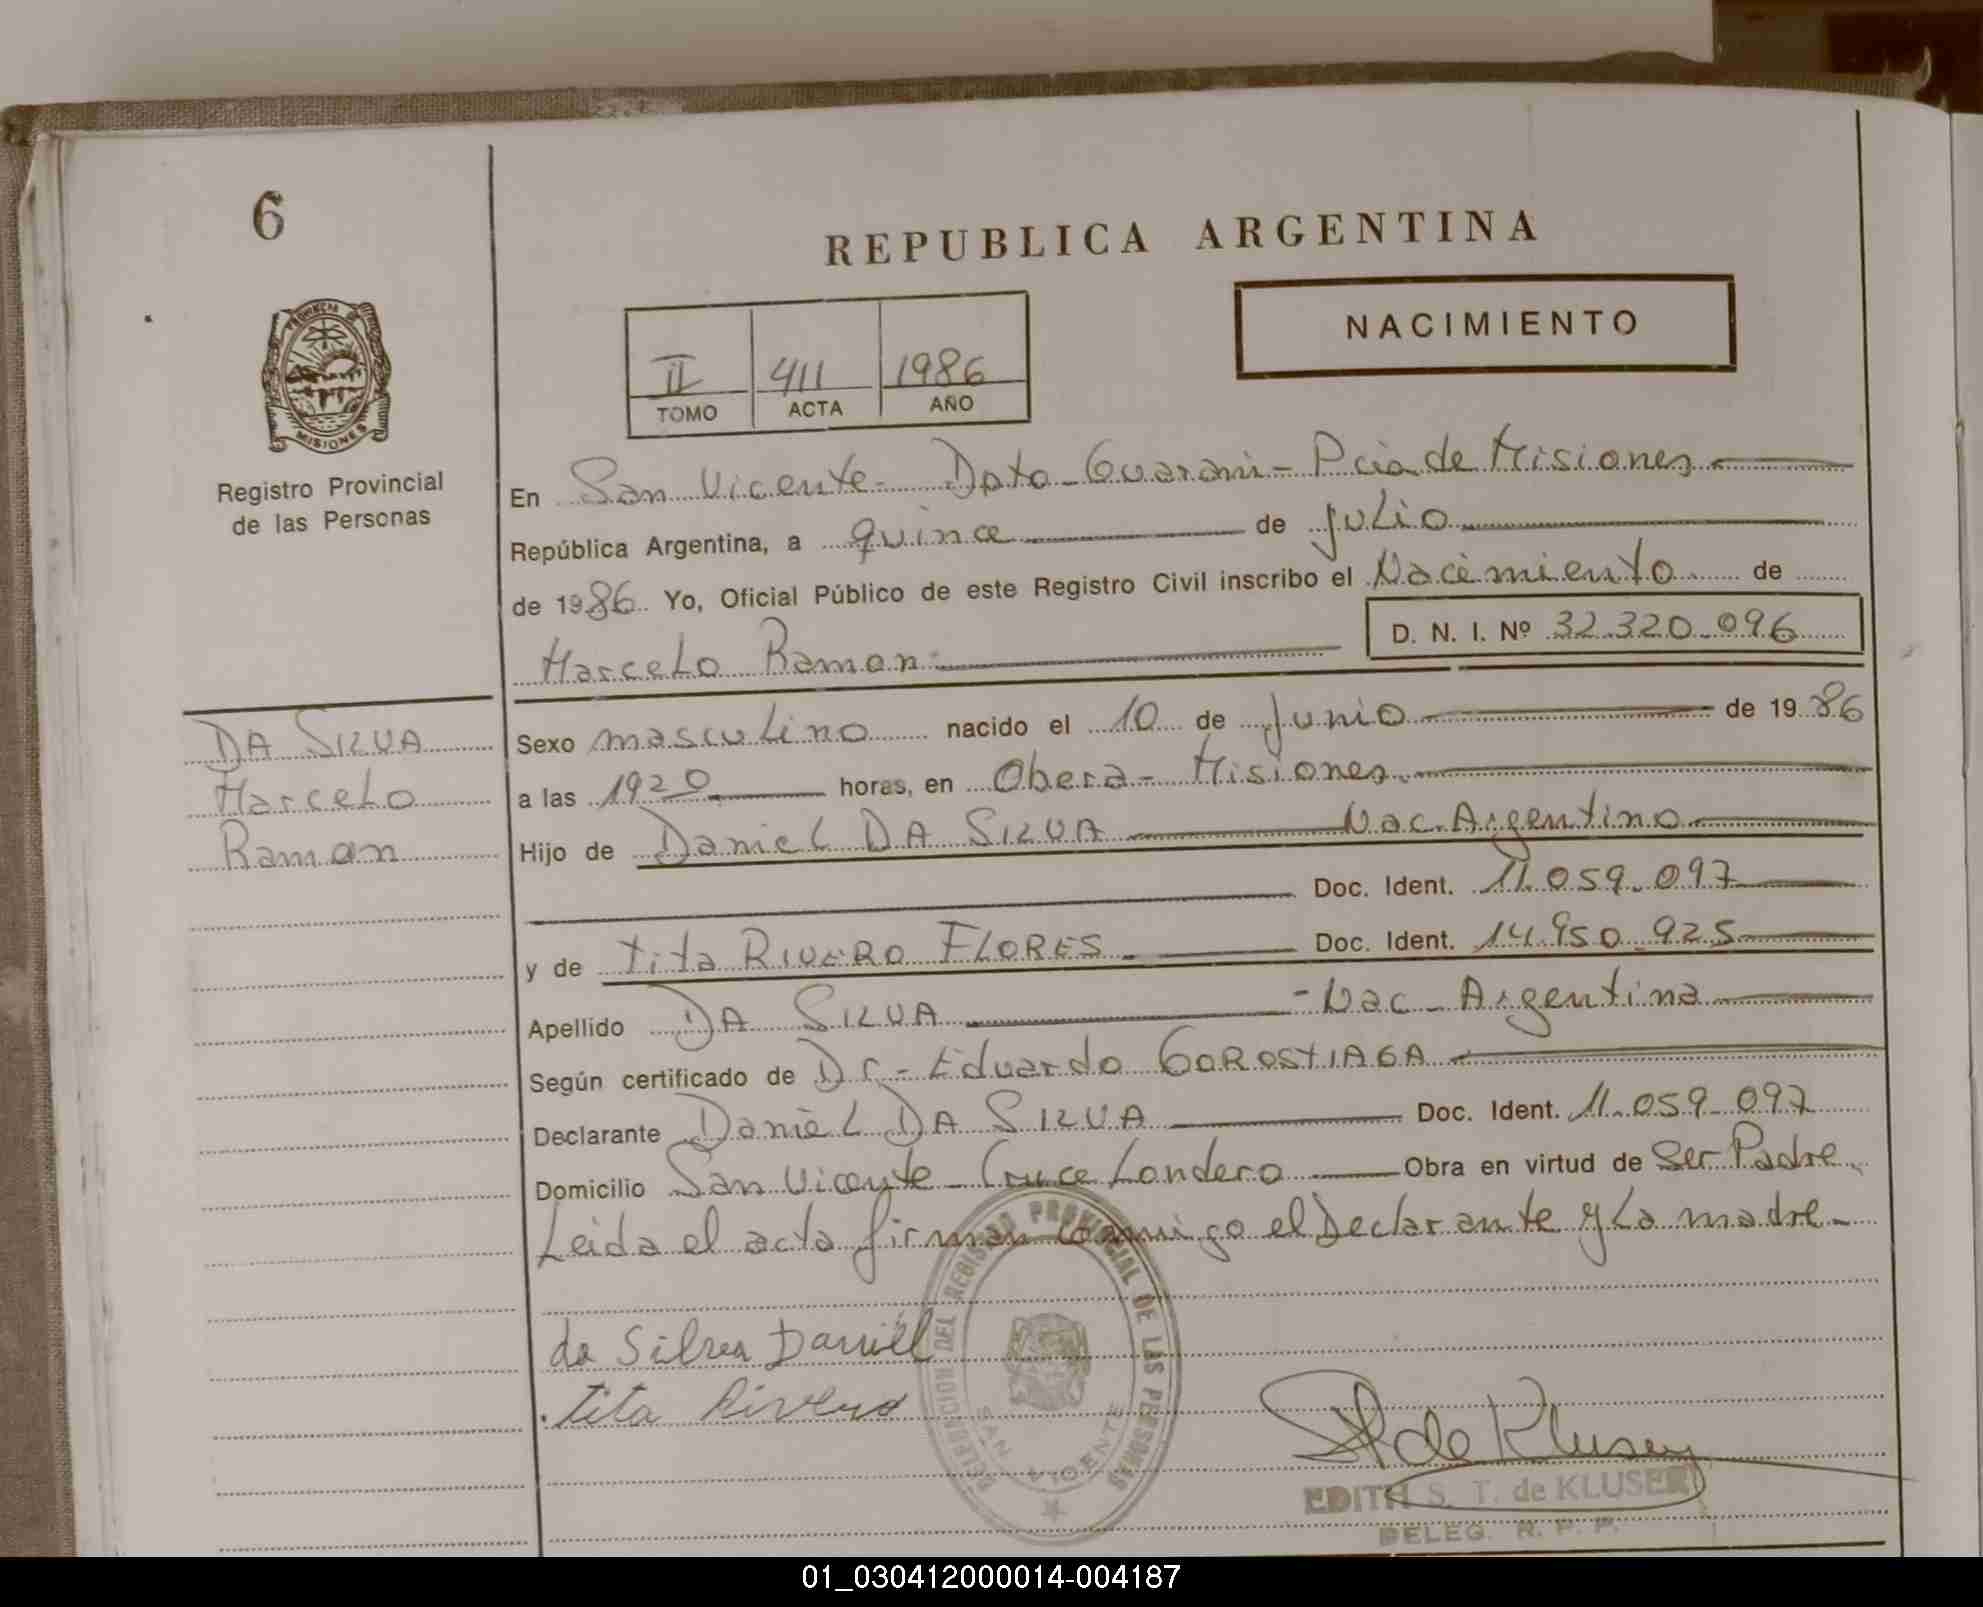 6
REPUBLICA ARGENTINA
NACIMIENTO
II 411 1986
TOMO ACTA AÑO
PROVINCIA DE
MISIONES
Registro Provincial
de las Personas
En San Vicente - Dpto - Guarani - Pcia de Misiones
República Argentina, a quince de julio
de 1986 Yo, Oficial Público de este Registro Civil inscribo el Nacimiento de
D. N. I. Nº 32.320.096
Marcelo Ramon
DA SILVA
Marcelo
Ramon
Sexo masculino nacido el 10 de Junio de 1986
a las 1920 horas, en Obera - Misiones
Hijo de Daniel DA SILVA Nac. Argentino
Doc. Ident. 11.059.097
y de Tita RIVERO FLORES Doc. Ident. 14.950.925
Apellido DA SILVA - Nac - Argentina
Según certificado de Dr - Eduardo GOROSTIAGA
Declarante Daniel DA SILVA Doc. Ident. 11.059.097
Domicilio San Vicente - Cruce Londero Obra en virtud de Ser Padre
Leida el acta firman conmigo el Declarante y La madre -
da Silva Daniel
Tita Rivero
DELEGACION DEL REGISTRO PROVINCIAL DE LAS PERSONAS
SAN VICENTE
de Kluser
EDITH S. T. de KLUSER
DELEG. R. P. P.
01_030412000014-004187